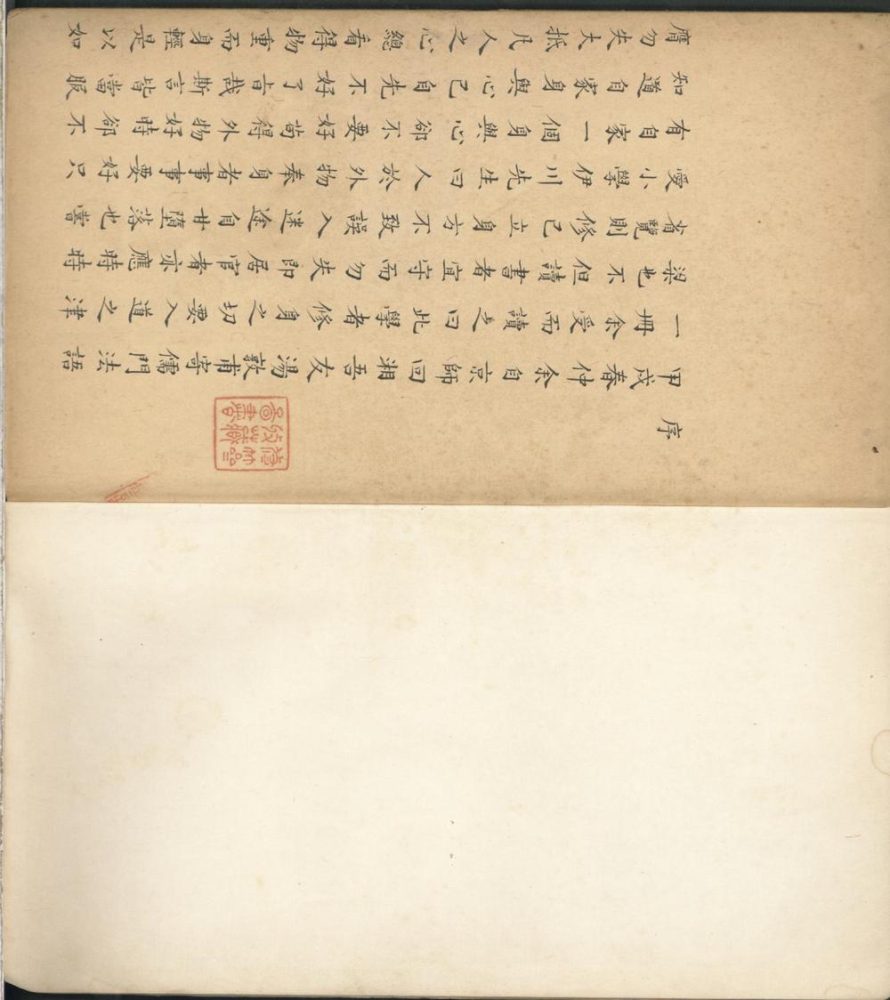 序
甲戌春仲余自京師回湘吾友湯敦甫寄儒門法語
一冊余受而讀之曰此學者修身之切要入道之津
梁也不但讀書者宜守而勿失即居官者亦應時時
省覽則修己立身方不致誤入迷途自甘墮落也嘗
愛小學伊川先生曰人於外物奉身者事事要好只
有自家一個身與心卻不要好苟得外物好時卻不
知道自家身與心己自先不好了旨哉斯言皆當服
膺勿失大抵凡人之心總看得物重而身輕是以如